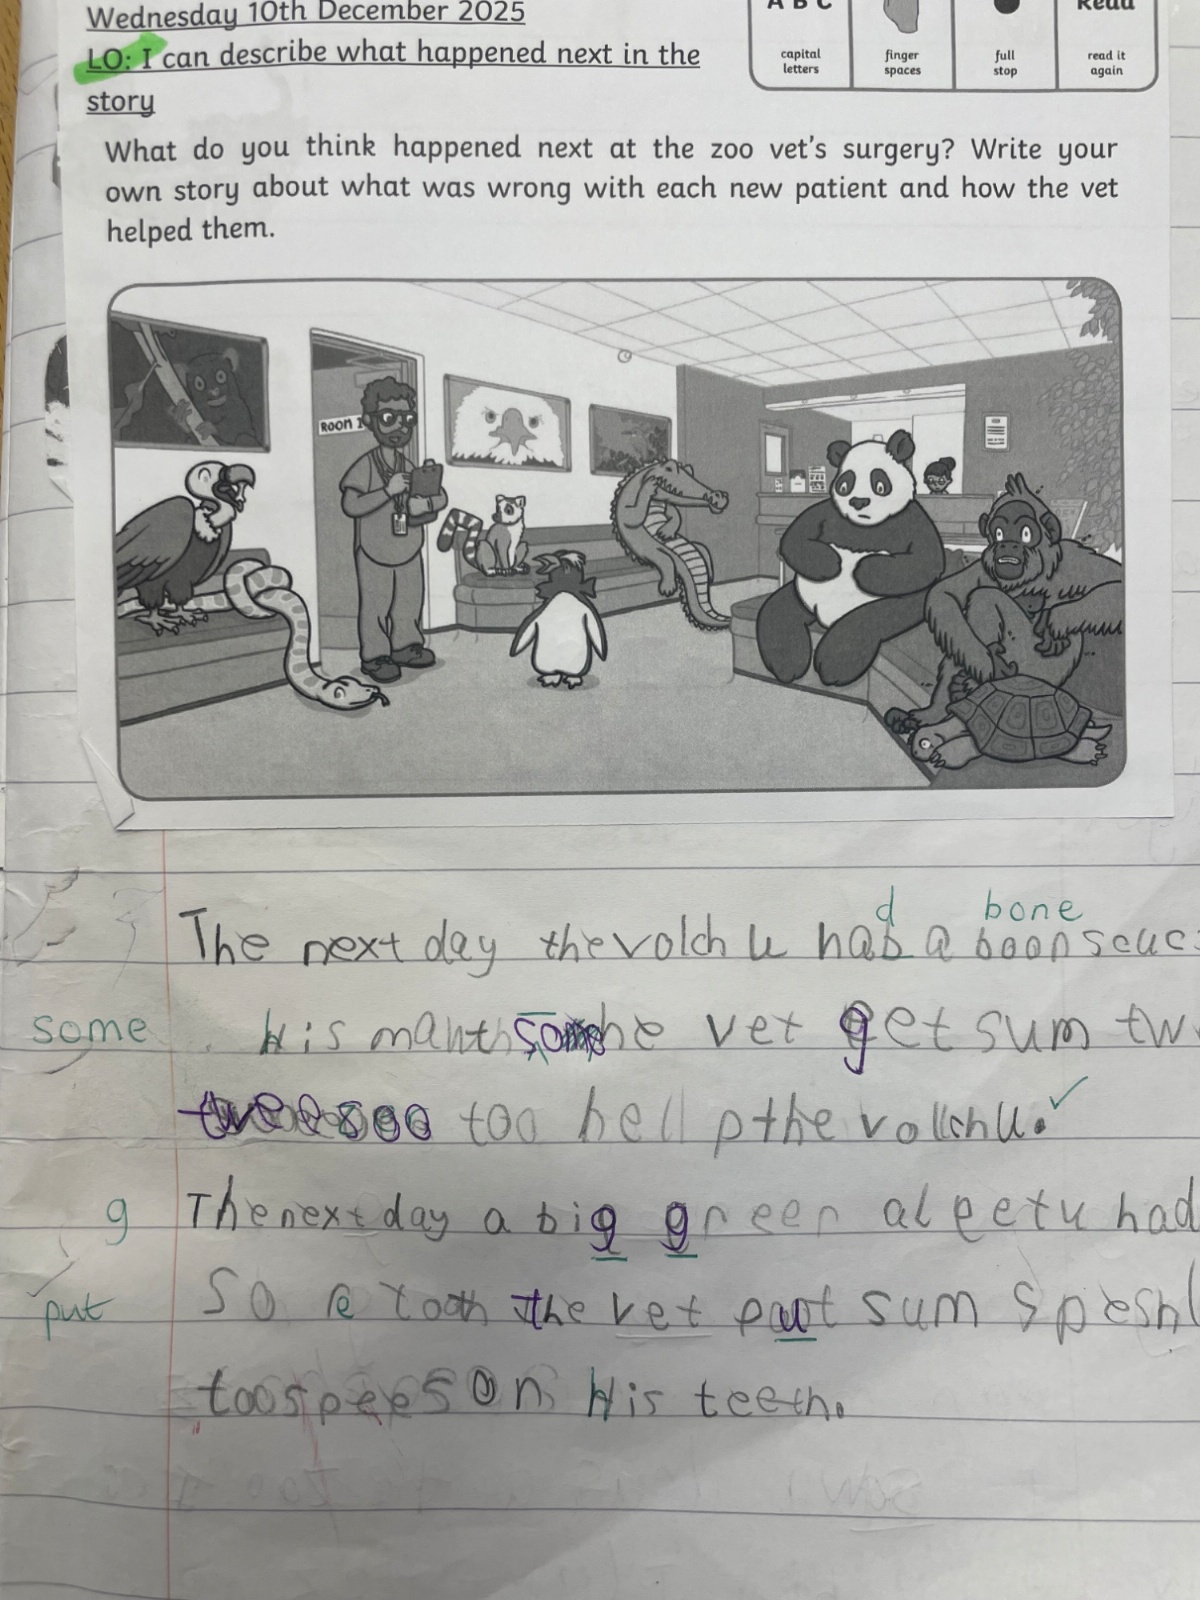 Wednesday 10th December 2025
LO: I can describe what happened next in the
story
A B C
Read
capital
letters
finger
spaces
full
stop
read it
again
What do you think happened next at the zoo vet's surgery? Write your
own story about what was wrong with each new patient and how the vet
helped them.
ROOM 1
d bone
The next day the volchu had a boon scuc
some His manth he vet get sum tw
too hellp the vollchu.
g The next day a big green aleetu had
put So e tooth the vet put sum speshl
toospees on His teeth.